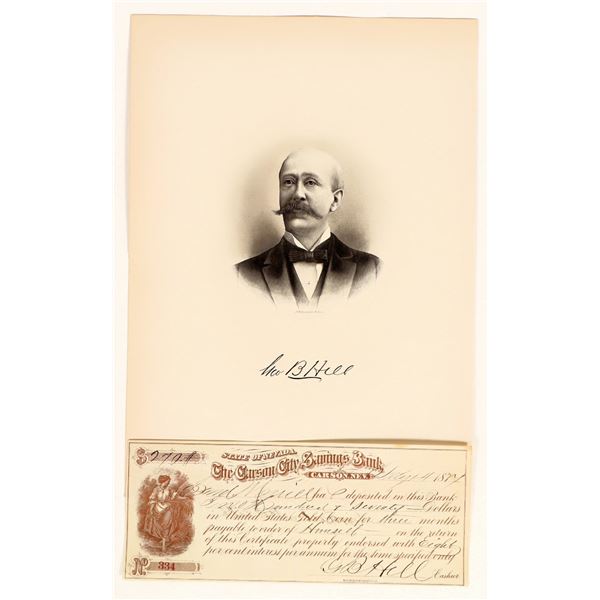 Geo B Hill
STATE OF NEVADA.
$
The Carson City Savings Bank
CARSON, NEV. May 4 1874
has deposited in this Bank
Two Hundred & Seventy Dollars
in United States Gold Coin for three months
payable to order of Himself on the return
of this Certificate properly endorsed with Eight
per cent interest per annum for the time specified only
No 334
G B Hill Cashier